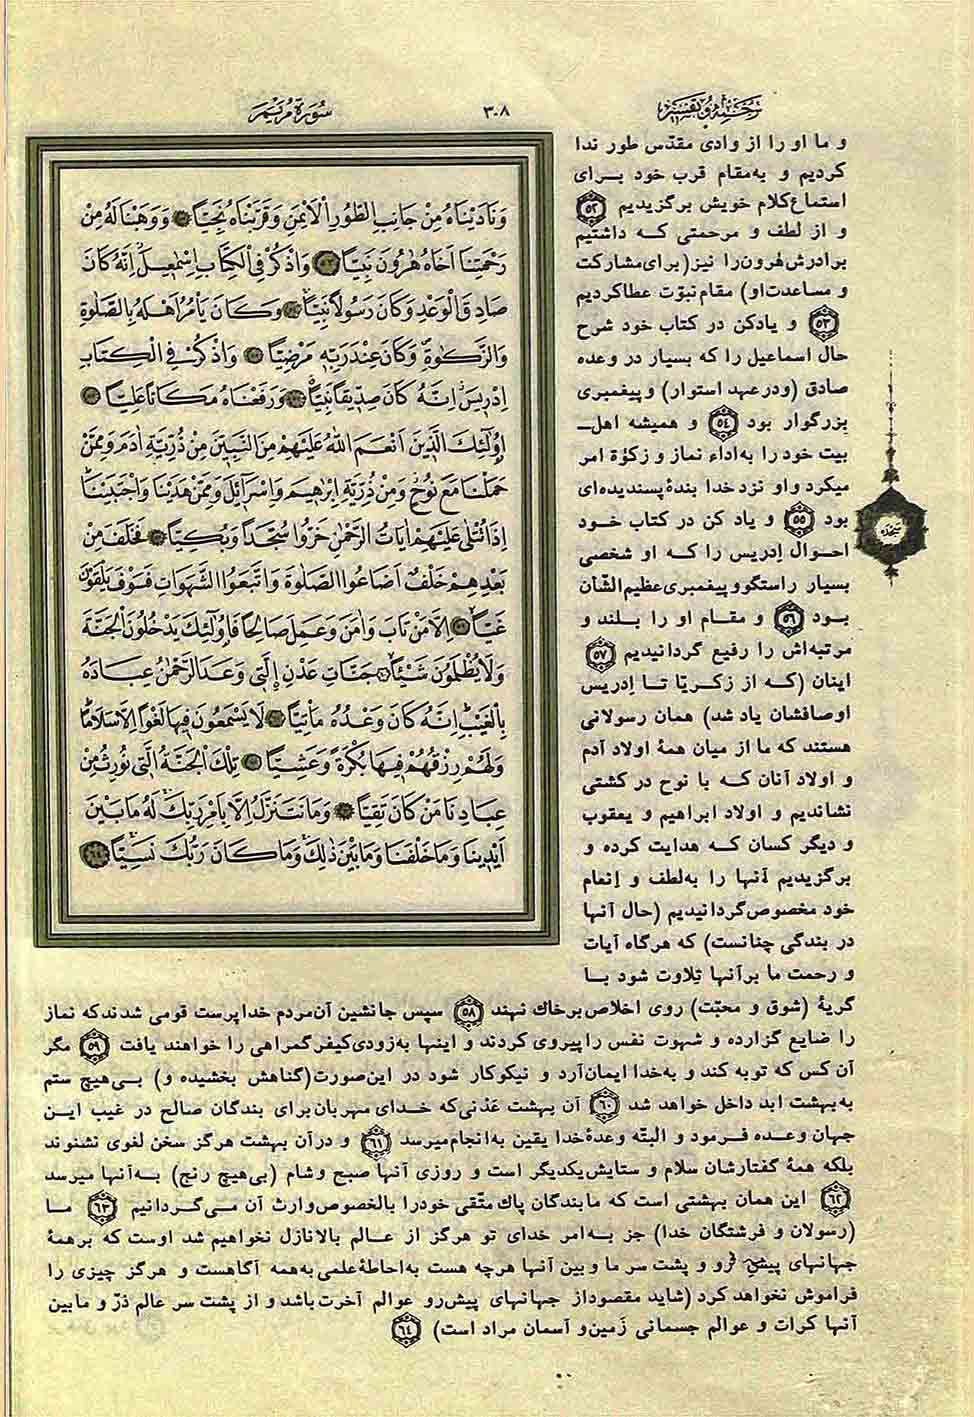 ترجمه و تفسیر
۳۰۸
سورة مریم
وَنَادَيْنَاهُ مِنْ جَانِبِ الطُّورِ الْأَيْمَنِ وَقَرَّبْنَاهُ نَجِيًّا ۵۲ وَوَهَبْنَا لَهُ مِنْ
رَحْمَتِنَا أَخَاهُ هٰرُونَ نَبِيًّا ۵۳ وَاذْكُرْ فِي الْكِتَابِ إِسْمٰعِيلَ إِنَّهُ كَانَ
صَادِقَ الْوَعْدِ وَكَانَ رَسُولًا نَبِيًّا ۵۴ وَكَانَ يَأْمُرُ أَهْلَهُ بِالصَّلٰوةِ
وَالزَّكٰوةِ وَكَانَ عِنْدَ رَبِّهِ مَرْضِيًّا ۵۵ وَاذْكُرْ فِي الْكِتَابِ
إِدْرِيسَ إِنَّهُ كَانَ صِدِّيقًا نَبِيًّا ۵۶ وَرَفَعْنَاهُ مَكَانًا عَلِيًّا ۵۷
أُولٰئِكَ الَّذِينَ أَنْعَمَ اللّٰهُ عَلَيْهِمْ مِنَ النَّبِيِّينَ مِنْ ذُرِّيَّةِ اٰدَمَ وَمِمَّنْ
حَمَلْنَا مَعَ نُوحٍ وَمِنْ ذُرِّيَّةِ إِبْرٰهِيمَ وَإِسْرَائِيلَ وَمِمَّنْ هَدَيْنَا وَاجْتَبَيْنَا
إِذَا تُتْلٰى عَلَيْهِمْ اٰيَاتُ الرَّحْمٰنِ خَرُّوا سُجَّدًا وَبُكِيًّا ۵۸ فَخَلَفَ مِنْ
بَعْدِهِمْ خَلْفٌ أَضَاعُوا الصَّلٰوةَ وَاتَّبَعُوا الشَّهَوَاتِ فَسَوْفَ يَلْقَوْنَ
غَيًّا ۵۹ إِلَّا مَنْ تَابَ وَاٰمَنَ وَعَمِلَ صَالِحًا فَأُولٰئِكَ يَدْخُلُونَ الْجَنَّةَ
وَلَا يُظْلَمُونَ شَيْئًا ۶۰ جَنَّاتِ عَدْنٍ الَّتِي وَعَدَ الرَّحْمٰنُ عِبَادَهُ
بِالْغَيْبِ إِنَّهُ كَانَ وَعْدُهُ مَأْتِيًّا ۶۱ لَا يَسْمَعُونَ فِيهَا لَغْوًا إِلَّا سَلَامًا
وَلَهُمْ رِزْقُهُمْ فِيهَا بُكْرَةً وَعَشِيًّا ۶۲ تِلْكَ الْجَنَّةُ الَّتِي نُورِثُ مِنْ
عِبَادِنَا مَنْ كَانَ تَقِيًّا ۶۳ وَمَا نَتَنَزَّلُ إِلَّا بِأَمْرِ رَبِّكَ لَهُ مَا بَيْنَ
أَيْدِينَا وَمَا خَلْفَنَا وَمَا بَيْنَ ذٰلِكَ وَمَا كَانَ رَبُّكَ نَسِيًّا ۶۴
و ما او را از وادی مقدّس طور ندا
کردیم و به‌مقام قرب خود برای
استماع کلام خویش برگزیدیم ۵۲
و از لطف و مرحمتی که داشتیم
برادرش هرون را نیز (برای مشارکت
و مساعدت او) مقام نبوّت عطا کردیم
۵۳ و یاد کن در کتاب خود شرح
حال اسماعیل را که بسیار در وعده
صادق (و در عهد استوار) و پیغمبری
بزرگوار بود ۵۴ و همیشه اهل‌ـ
بیت خود را به‌اداء نماز و زکوٰة امر
میکرد و او نزد خدا بندهٔ پسندیده‌ای
بود ۵۵ و یاد کن در کتاب خود
احوال اِدریس را که او شخصی
بسیار راستگو و پیغمبری عظیم الشّأن
بود ۵۶ و مقام او را بلند و
مرتبه‌اش را رفیع گردانیدیم ۵۷
اینان (که از زکریّا تا اِدریس
اوصافشان یاد شد) همان رسولانی
هستند که ما از میان همهٔ اولاد آدم
و اولاد آنان که با نوح در کشتی
نشاندیم و اولاد ابراهیم و یعقوب
و دیگر کسان که هدایت کرده و
برگزیدیم آنها را به‌لطف و اِنعام
خود مخصوص گردانیدیم (حال آنها
در بندگی چنانست) که هرگاه آیات
و رحمت ما بر آنها تِلاوت شود با
سجده
گریهٔ (شوق و محبّت) روی اخلاص بر خاك نهند ۵۸ سپس جانشین آن مردم خداپرست قومی شدند که نماز
را ضایع گزارده و شهوت نفس را پیروی کردند و اینها به‌زودی کیفر گمراهی را خواهند یافت ۵۹ مگر
آن کس که توبه کند و به‌خدا ایمان آرد و نیکوکار شود در این صورت (گناهش بخشیده و) بی‌هیچ ستم
به‌بهشت ابد داخل خواهد شد ۶۰ آن بهشت عَدْنی که خدای مهربان برای بندگان صالح در غیب این
جهان وعده فرمود و البتّه وعدهٔ خدا یقین به‌انجام میرسد ۶۱ و در آن بهشت هرگز سخن لغوی نشنوند
بلکه همهٔ گفتارشان سلام و ستایش یکدیگر است و روزی آنها صبح و شام (بی‌هیچ رنج) به‌آنها میرسد
۶۲ این همان بهشتی است که ما بندگان پاك متّقی خود را بالخصوص وارث آن می‌گردانیم ۶۳ ما
(رسولان و فرشتگان خدا) جز به‌امر خدای تو هرگز از عالم بالا نازل نخواهیم شد اوست که بر همهٔ
جهانهای پیش رو و پشت سر ما و بین آنها هرچه هست به‌احاطهٔ علمی به‌همه آگاهست و هرگز چیزی را
فراموش نخواهد کرد (شاید مقصود از جهانهای پیش‌رو عوالم آخرت باشد و از پشت سر عالم ذرّ و مابین
آنها کرات و عوالم جسمانی زَمین و آسمان مراد است) ۶۴